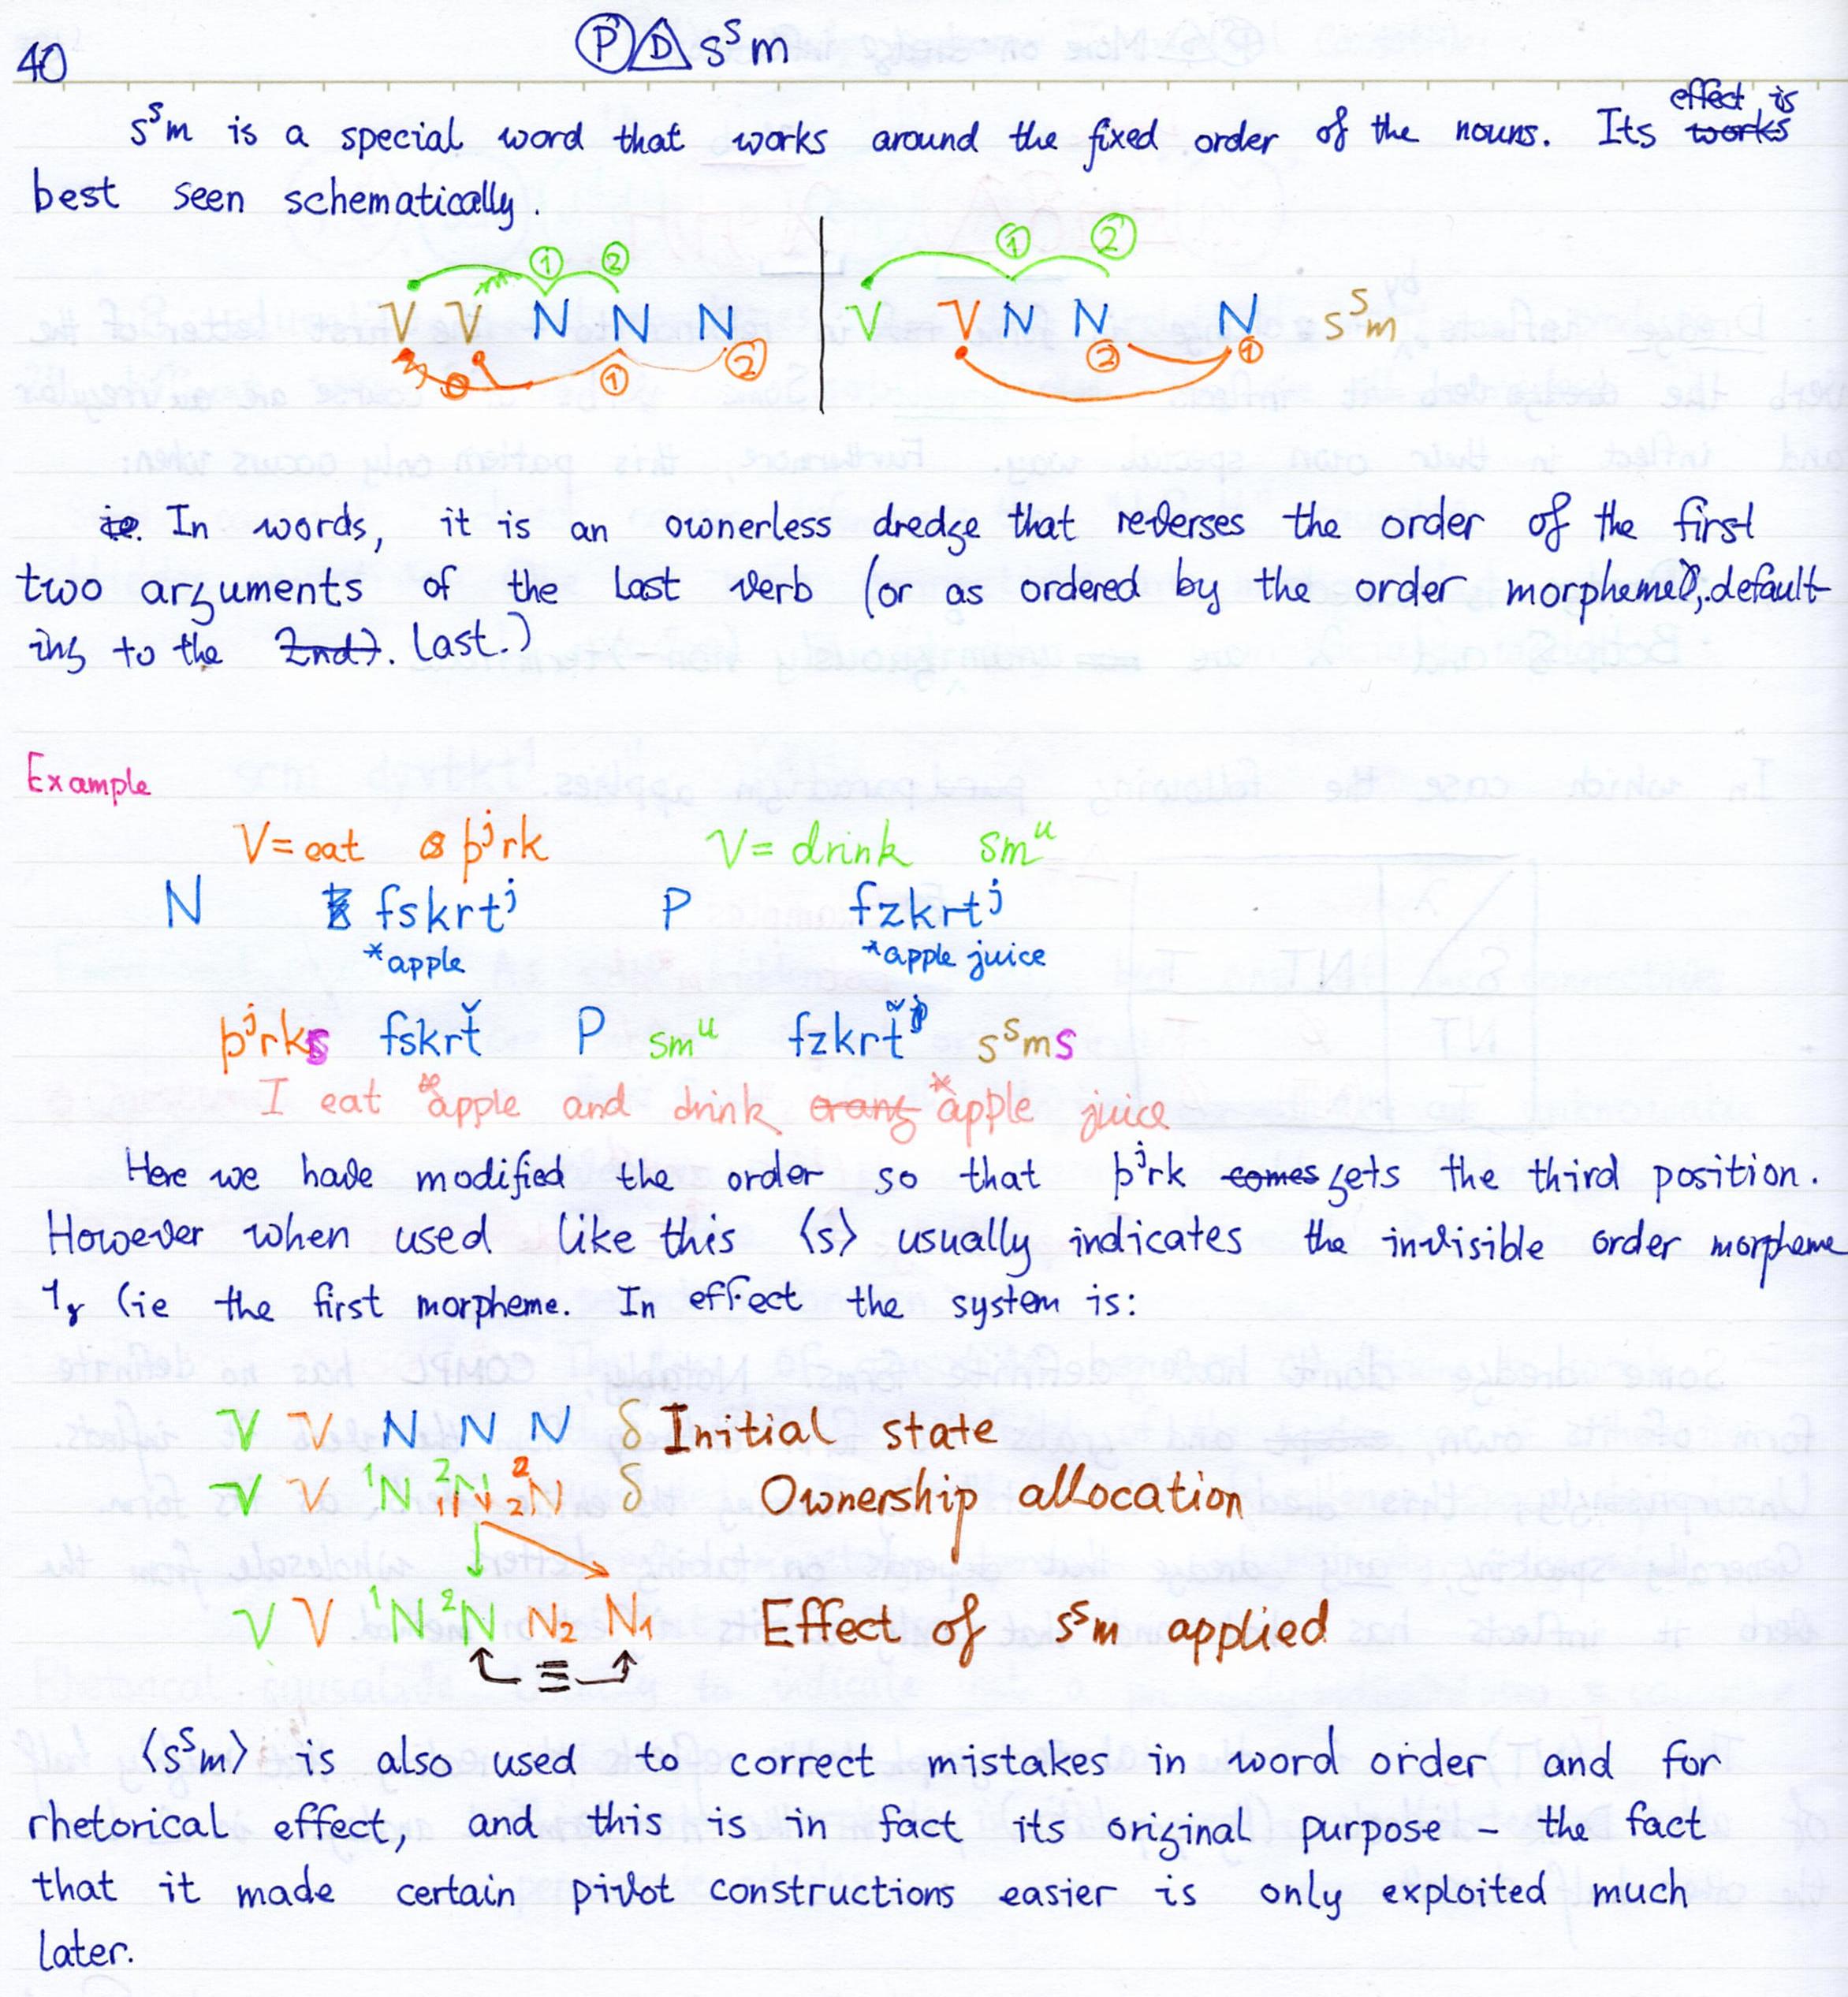 40
Ⓟ D sˢm
sˢm is a special word that works around the fixed order of the nouns. Its works effect is
best seen schematically.
① ② ① ②
V V N N N V V N N N sˢm
① ② ② ①
ie. In words, it is an ownerless dredge that reverses the order of the first
two arguments of the last verb (or as ordered by the order morpheme), default-
ing to the 2nd). last.)
Example
V = eat þʲrk V = drink smᵘ
N fskrtʲ P fzkrtʲ
*apple *apple juice
þʲrks fskrť P smᵘ fzkrť sˢms
I eat *apple and drink orang *apple juice
Here we have modified the order so that þʲrk comes gets the third position.
However when used like this ⟨s⟩ usually indicates the invisible order morpheme
(ie the first morpheme. In effect the system is:
V V N N N δ Initial state
V V ¹N ²₁N ₂N δ Ownership allocation
V V ¹N ²N N₂ N₁ Effect of sˢm applied
≡
⟨sˢm⟩ is also used to correct mistakes in word order and for
rhetorical effect, and this is in fact its original purpose – the fact
that it made certain pivot constructions easier is only exploited much
later.